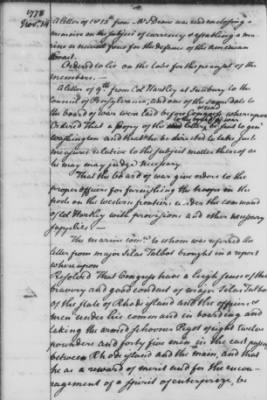 1778
Nov. 14
A letter of 12th from Mr Deane was read enclosing a
memoire on the subject of currency & of building a ma
rine in several ports for the defence of the American
Coast.
Ordered to lie on the table for the perusal of the
members.
A letter of 9th from Col Hartley at Sunbury to the
Council of Pensylvania, and one of the same date to
the board of war were laid before Congress whereupon
Ordered That a copy of the letter be sent to genl
Washington and that he be directed to take such
measures relative to the subject matter thereof as
he may may judge necessary
That the board of war give orders to the
proper officers for furnishing the troops in the
posts on the western frontiers under the command
of Col Hartley with provisions and other necessary
supplies
The marine comee to whom was referred the
letter from major Silas Talbot brought in a report
whereupon
Resolved That Congress have a high sense of the
bravery and good conduct of major Silas Talbot
of the state of Rhode island and the officers &
men under his command in boarding and
taking the armed schooner Pigot of eight twelve
pounders and forty five men in the east passage
between Rhode island and the main, and that
he as a reward of merit and for the encou-
ragement of a spirit of enterprize, be